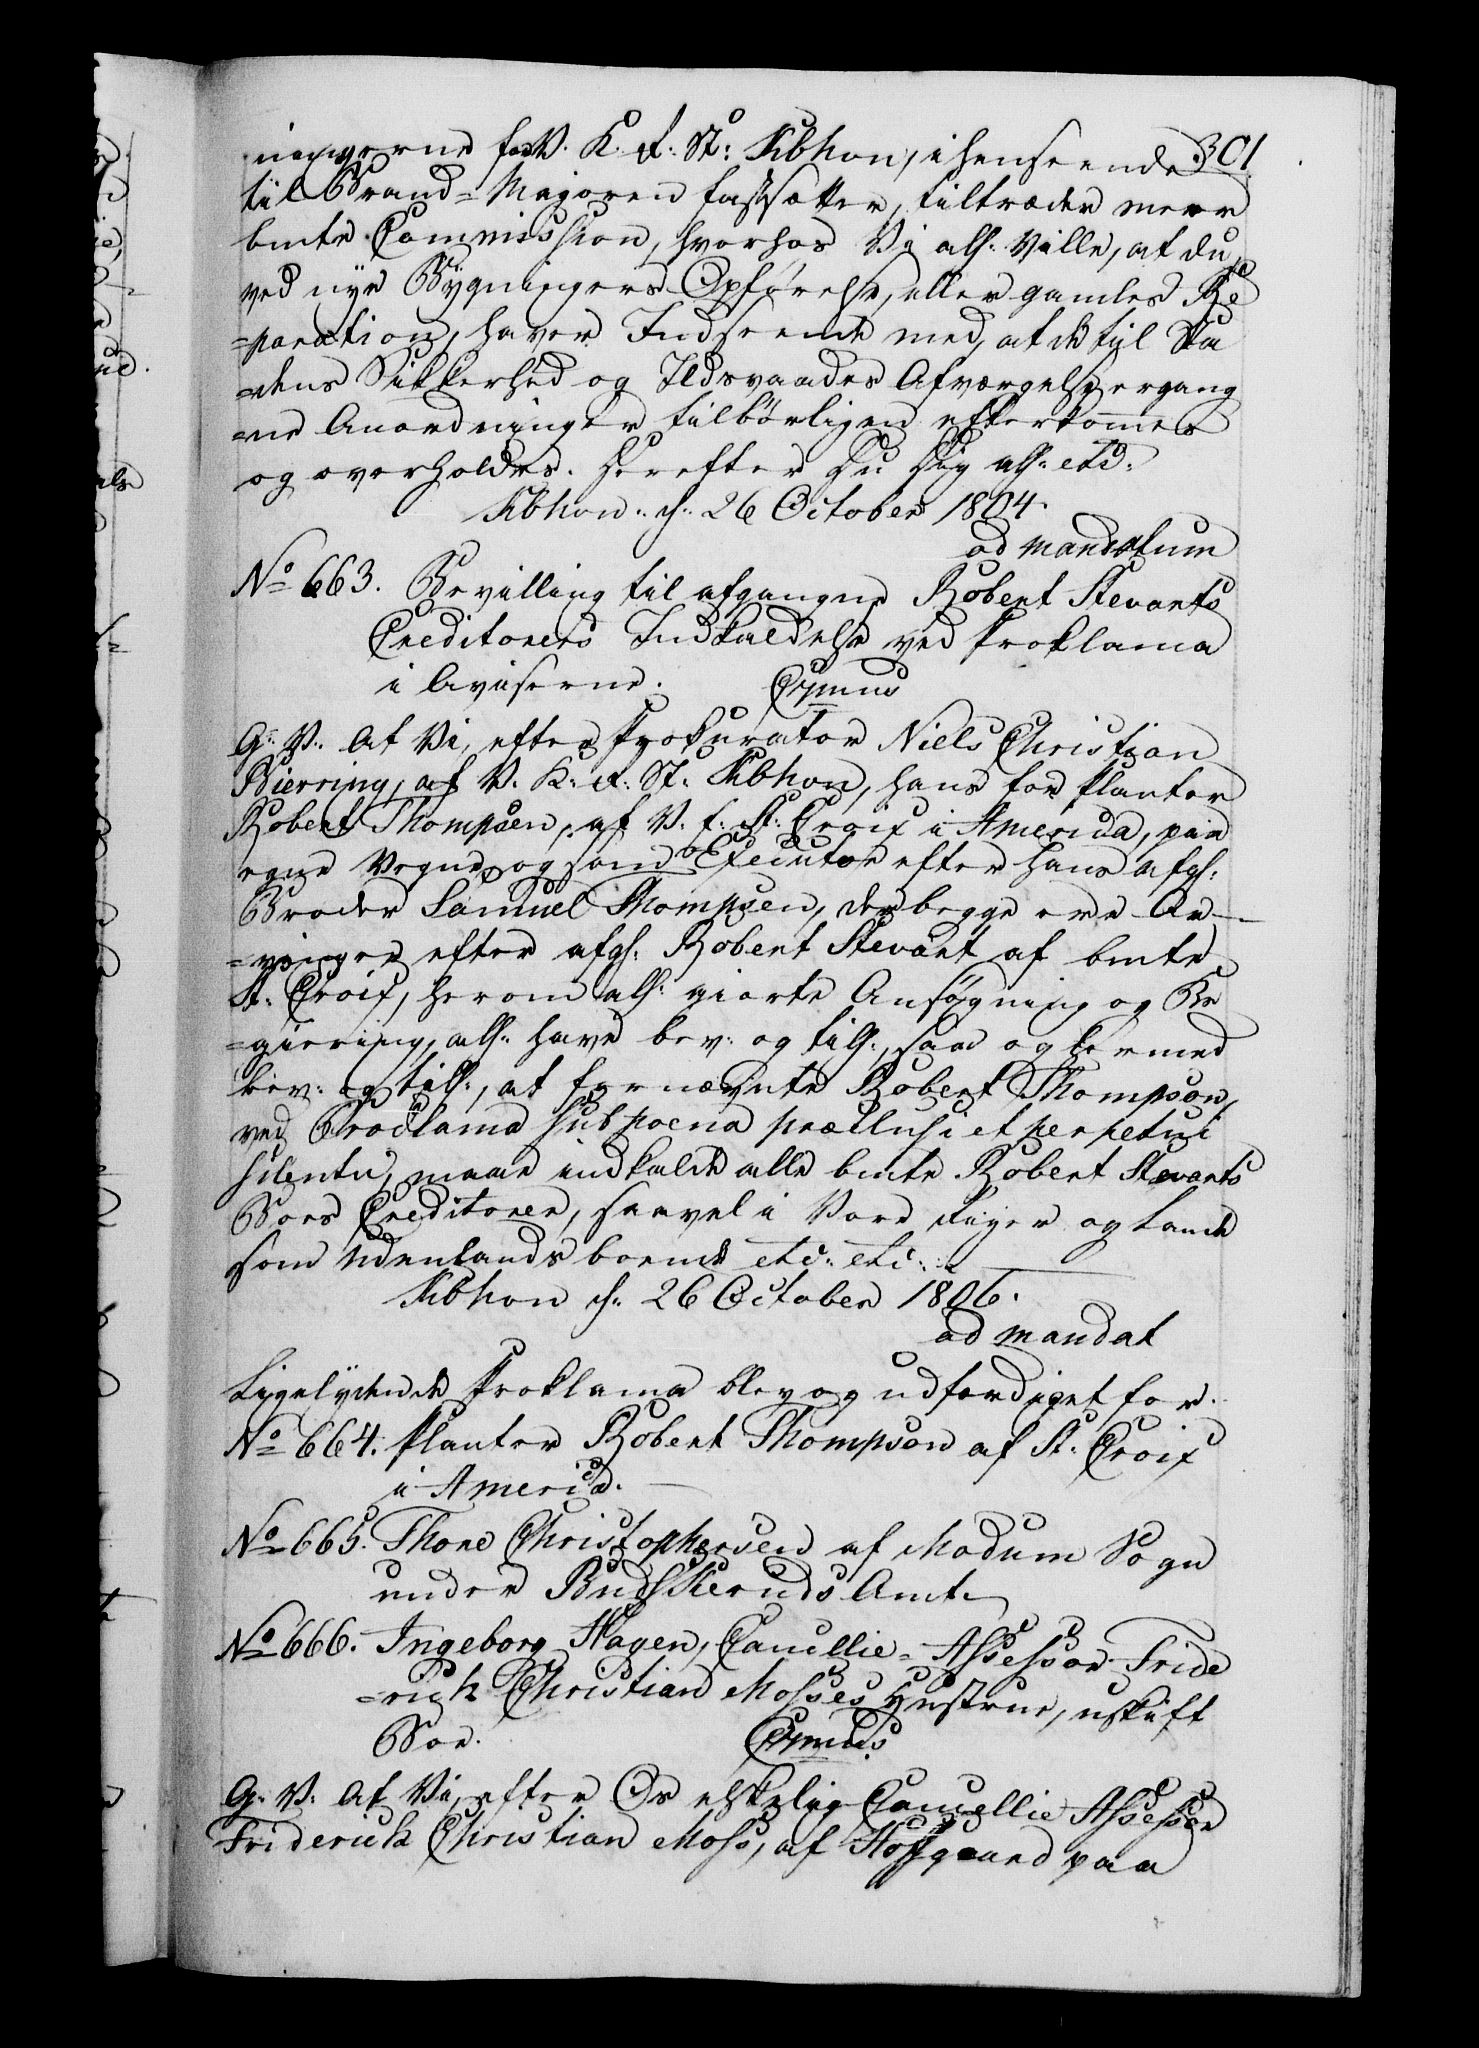 301
ningerne for V. K. R. St: Kbhvn, i henseende
til Brand-Majoren fastsætter, tiltræder meer
bmte Commission, hvorhos Vi alln. Ville, at du,
ved nye Bygningers Opførelse, eller gamles Re
=paration, haver Indseende med, at de til Sta
=dens Sikkerhed og Ildsvaades Afværgelse ergang
=ne Anordninger tilbørligen efterkommes
og overholdes. Herefter Du Dig alln. etc:
Kbhvn: d. 26 October 1804.
ad mandatum
No 663. Bevilling til afgangne Robert Stevarts
Creditorers Indkaldelse ved Proklama
i Aviserne.
G: V: At Vi, efter Prokurator Niels Christian
Bierring, af V. K. R. St: Kbhvn, hans for Planter
Robert Thompsen, af V. E. St: Croix i America, paa
egne Vegne og som Executor efter hans afg:
Broder Samuel Thompsen, der begge ere Ar
=vinger efter afg: Robert Stevart af bmte
St: Croix, herom all: giorte Ansøgning og Be
=giering, all: have bev: og till:, saa og hermed
bev: og till:, at fornævnte Robert Thompson,
ved Proclama sub poena præclusi et perpetui
silentii, maae indkalde alle bmte Robert Stevarts
Boes Creditorer, saavel i Vore Riger og Lande
som udenlands boende etc: etc:
Kbhvn d. 26 October 1806.
ad mandat
Ligelydende Proklama blev og udfærdiget for.
No 664. Planter Robert Thompson af St: Croix
i America.
No 665. Thore Christophersen af Modum Sogn
under Budskeruds Amt
No 666. Ingeborg Hagen, Cancellie-Assessor Fride
=rich Christian Mosses Hustrue, uskift
Boe.
G: V: At Vi, efter Os elskelig Cancellie Assessor
Friderich Christian Moss, af Hoffgaard paa